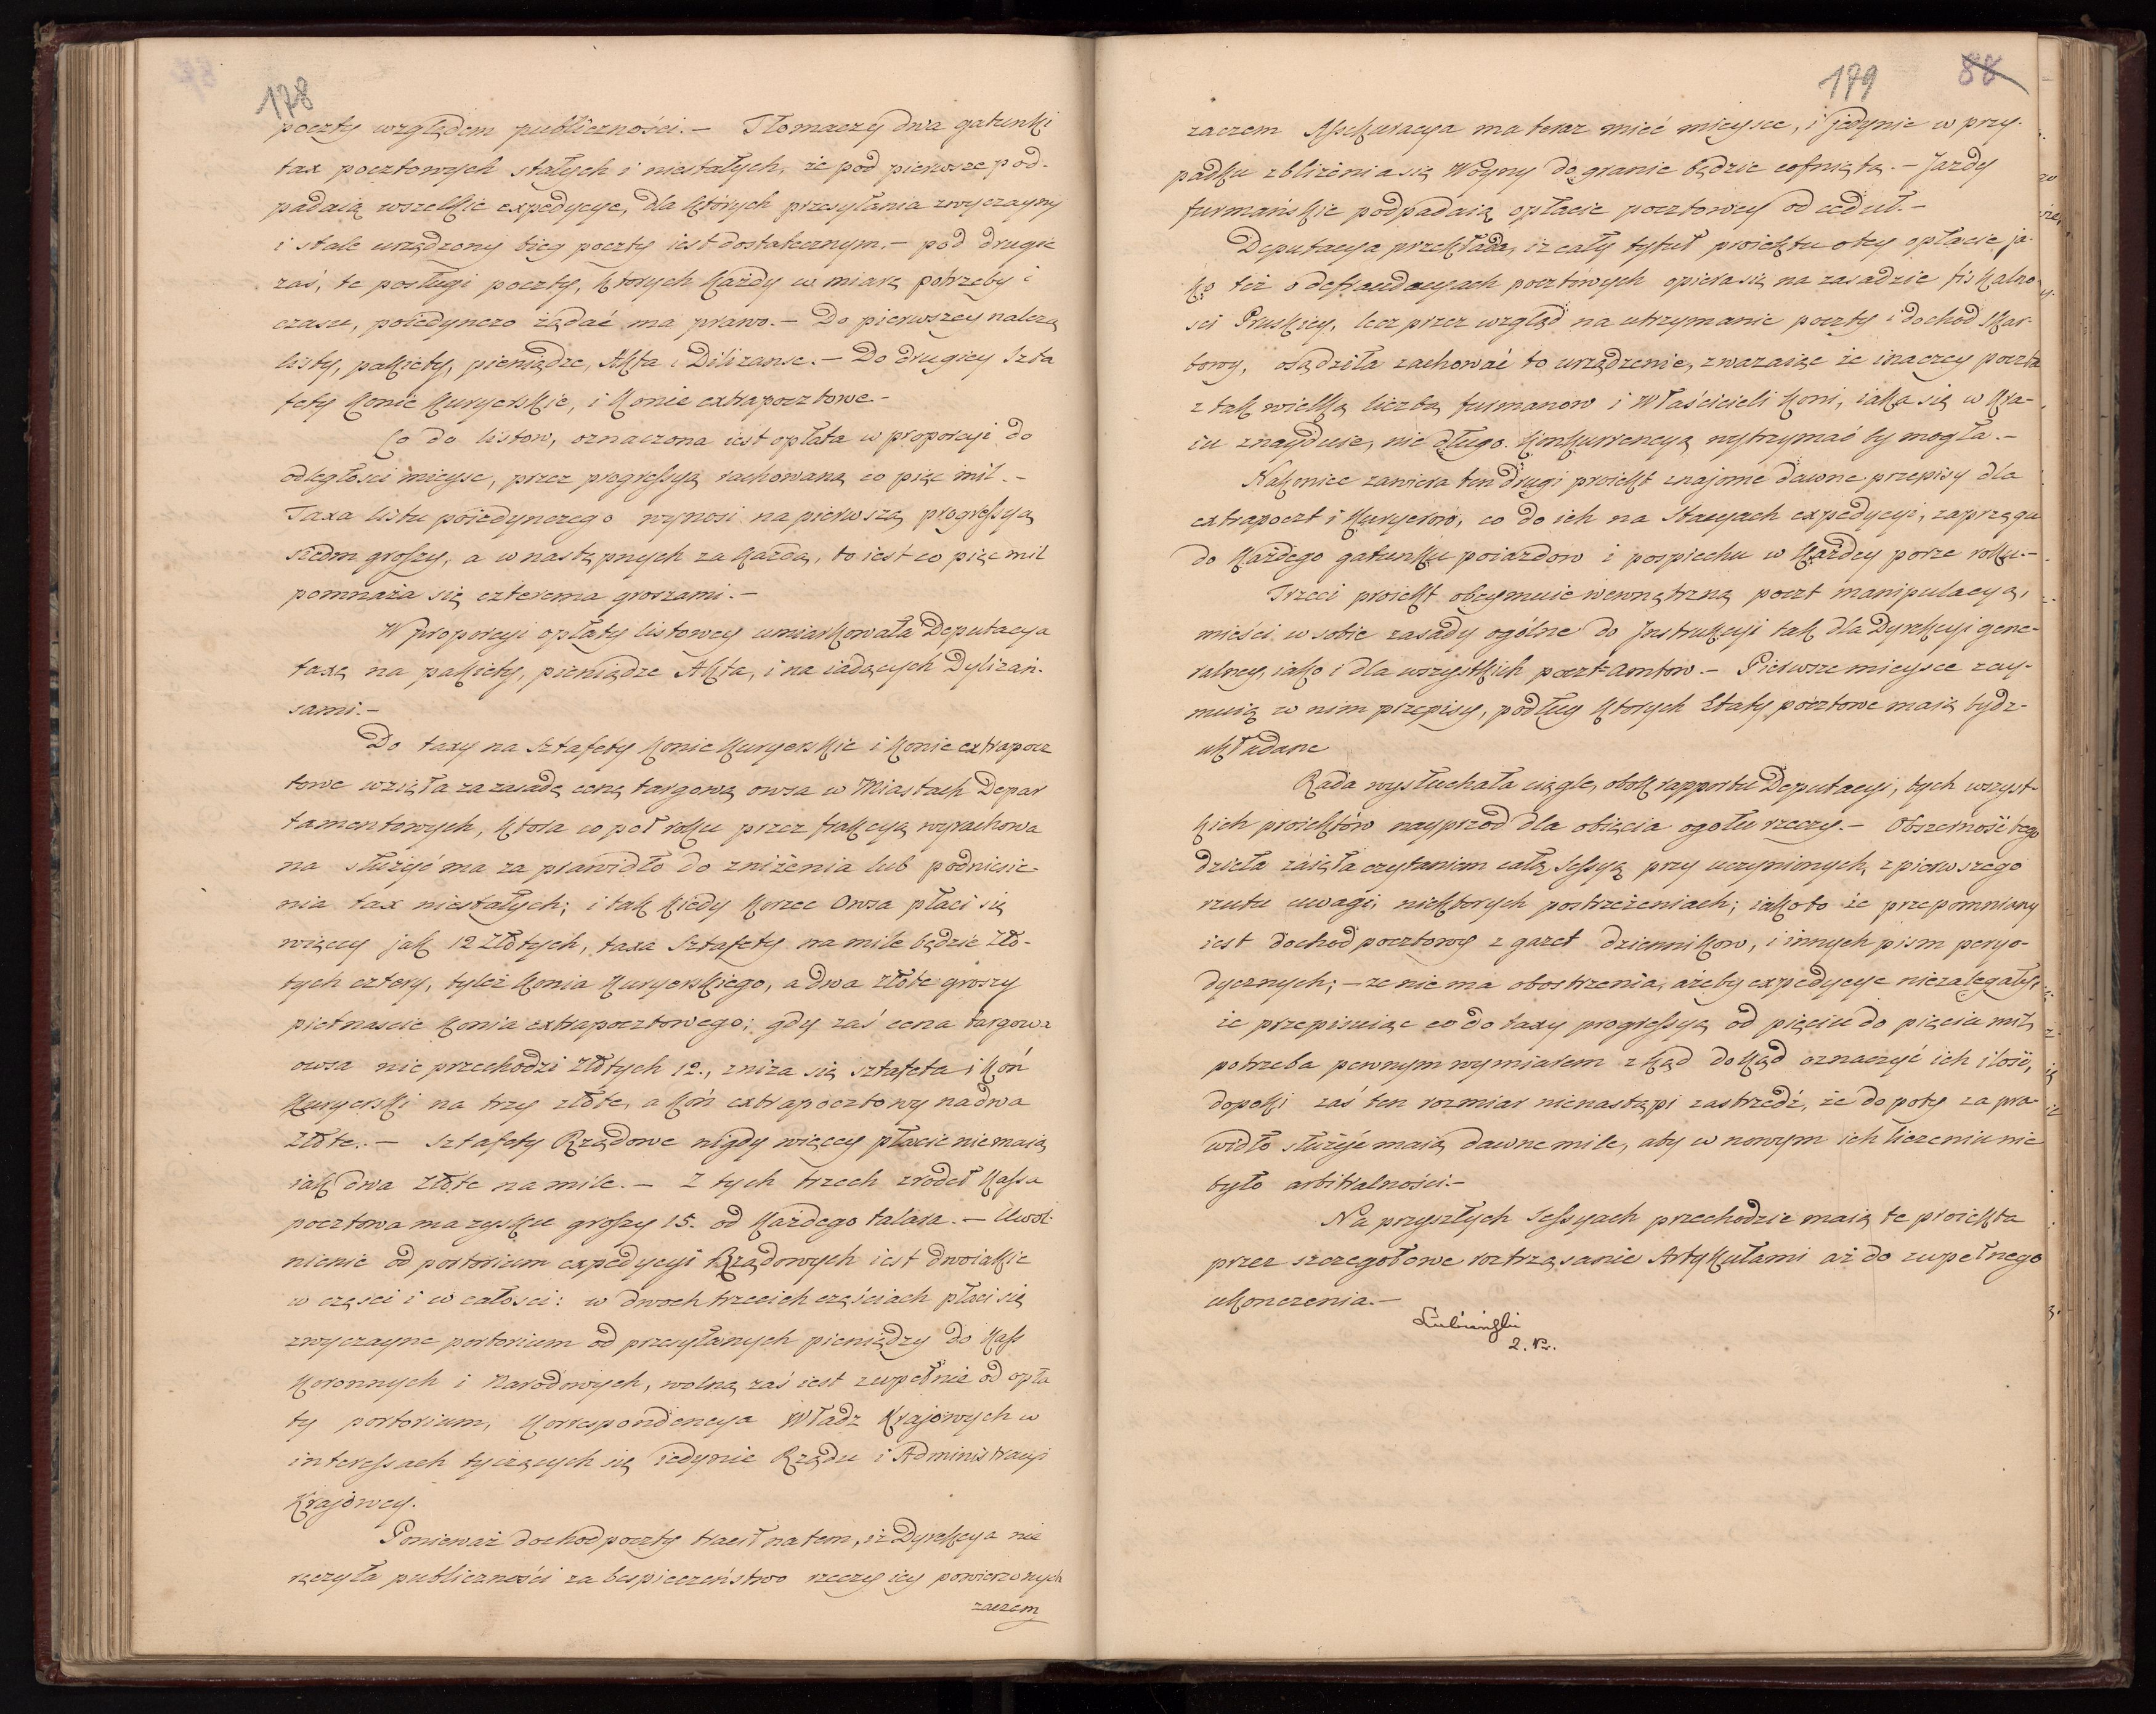 178
poczty względem publiczności. — Tłomaczy dwa gatunki
tax pocztowych stałych i niestałych, że pod pierwsze pod-
padaią wszelkie expedycye, dla których przesyłania zwyczayny
i stale urządzony bieg poczty iest dostatecznym. — pod drugie
zaś, te posługi poczty, ktorych każdy w miarę potrzeby i
czasu, poiedynczo żądać ma prawo. — Do pierwszey należą
listy, pakiety, pieniądze, Akta i Dilizanse. — Do drugiey Szta
fety konie kuryerskie, i konie extrapocztowe. —
Co do listow, oznaczona iest opłata w proporcyi do
odległosci mieysc, przez progressyą rachowaną co pięc mil. —
Taxa listu poiedynczego wynosi na pierwszą progressyą
siedm groszy, a w następnych za każdą, to iest co pięc mil
pomnaża się czterema groszami. —
W proporcyi opłaty listowey umiarkowała Deputacya
taxę na pakiety, pieniądze Akta, i na iadących Dylizan-
sami. —
Do taxy na sztafety konie kuryerskie i konie extrapocz
towe wzięła za zasadę cenę targową owsa w Miastach Depar
tamentowych, ktora co poł roku przez frakcyą wyrachowa
na służyć ma za prawidło do zniżenia lub podniesie-
nia tax niestałych; i tak kiedy korzec Owsa płaci się
więcey jak 12 Złotych, taxa Sztafety na mile będzie Zło-
tych cztery, tyleż konia kuryerskiego, a dwa złote groszy
pietnascie konia extrapocztowego; gdy zaś cena targowa
owsa nie przechodzi Złotych 12., zniza się sztafeta i koń
kuryerski na trzy złote, a koń extrapocztowy na dwa
Złote. — Sztafety Rządowe nigdy więcey płacic nie maią
iak dwa Złote na mile. — Z tych trzech zrodeł kassa
pocztowa ma zysku groszy 15. od każdego talara. — Uwol-
nienie od portorium expedycyi Rządowych iest dwoiakie
w częsci i w całosci: w dwoch trzecich częściach płaci się
zwyczayne portorium od przesyłanych pieniędzy do kass
koronnych i Narodowych, wolną zaś iest zupełnie od opła
ty portorium, korrespondencya Władz Krajowych w
interessach tyczących się iedynie Rządu i Administracyi
Krajowey.
Ponieważ dochod poczty tracił na tem, iż Dyrekcya nie
ręczyła publiczności za bespieczeństwo rzeczy iey powierzonych
zaczem
179 88
zaczem Assekuracya ma teraz mieć mieysce, i jedynie w przy-
padku zbliżenia się Woyny do granic będzie cofniętą. — Jazdy
furmańskie podpadaią opłacie pocztowey od ceduł. —
Deputacya przekłada, iż cały tytuł proiektu o tey opłacie ja-
ko też o defraudacyach pocztowych opiera się na zasadzie fiskalno
sci Pruskiey, lecz przez wzgląd na utrzymanie poczty i dochod Skar-
bowy, osądziła zachować to urządzenie, zwazaiąc że inaczey poczta
z tak wielką liczbą furmanow i Właścicieli koni, iaka się w kra-
iu znayduie, nie długo konkurrencyą wytrzymać by mogła. —
Nakoniec zawiera ten drugi proiekt znajome dawne przepisy dla
extrapoczt i kuryerow, co do ich na Stacyach expedycyi, zaprzęgu
do każdego gatunku poiazdow i pospiechu w każdey porze roku. —
Trzeci proiekt obeymuie wewnętrzną poczt manipulacyą,
mieści w sobie zasady ogólne do Jnstrukcyi tak dla Dyrekcyi gene-
ralney, iako i dla wszystkich poczt-Amtow. — Pierwsze mieysce zay-
muią w nim przepisy, podług ktorych Etaty pocztowe maią bydz
układane
Rada wysłuchała ciągle, obok rapportu Deputacyi, tych wszyst-
kich proiektów nayprzod dla obięcia ogołu rzeczy. — Obszerność tego
dzieła zaięła czytaniem całą Sessyą przy uczynionych, z pierwszego
rzutu uwagi, niektorych postrzeżeniach; iakoto że przepomniany
iest dochod pocztowy z gazet dziennikow, i innych pism peryo-
dycznych; — ze nie ma obostrzenia, ażeby expedycye niezalegały,
że przepisuiąc co do taxy progressyą od pięciu do pięciu mil,
potrzeba pewnym wymiarem zkąd dokąd oznaczyć ich ilość,
dopoki zaś ten rozmiar nienastąpi zastrzedź, że dopoty za pra-
widło służyć maią dawne mile, aby w nowym ich liczeniu nie
było arbitralności. —
Na przyszłych Sessyach przechodzić maią te proiekta
przez szczegołowe roztrząsanie Artykułami aż do zupełnego
ukonczenia. —